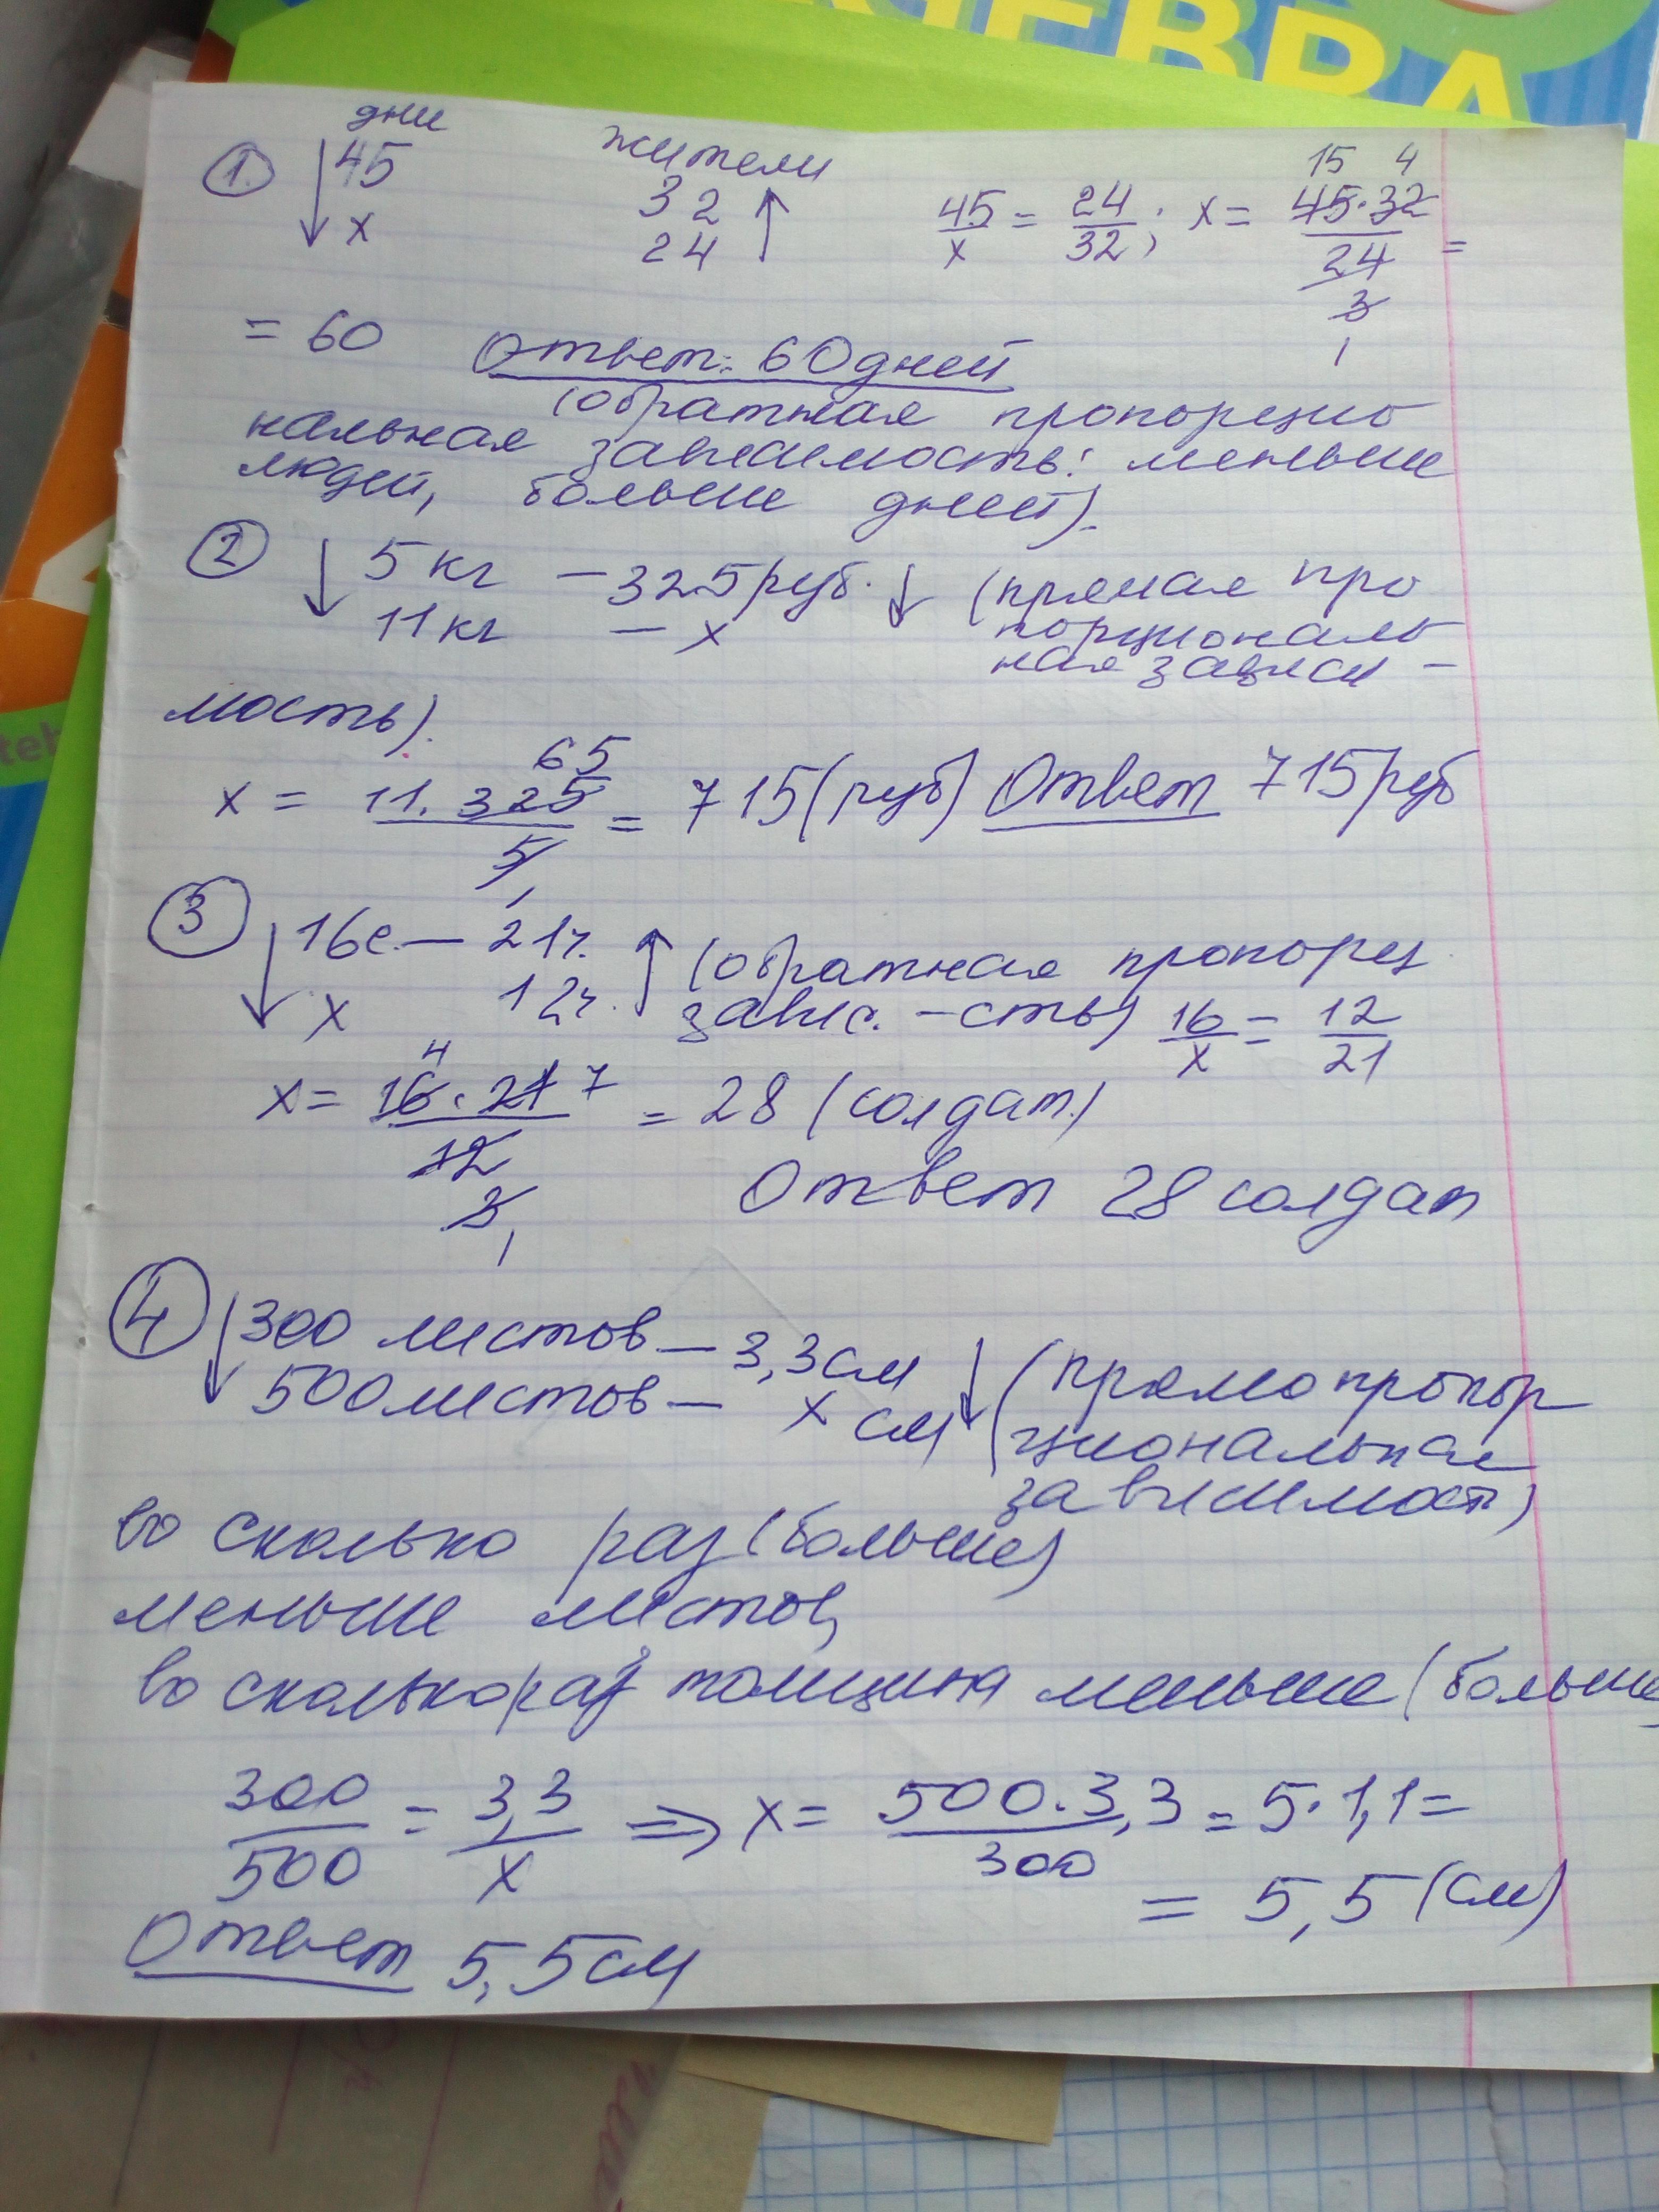 ГЕБРА
① дни жители
45 32
x 24
45/x = 24/32; x = 45·32/24 =
15 4
3
1
= 60 Ответ: 60 дней
(обратная пропорцио
нальная зависимость: меньше
людей, больше дней).
② 5 кг – 325 руб. (прямая про
11 кг – x порциональ
ная зависи –
мость).
65
x = 11·325/5 = 715 (руб) Ответ 715 руб
1
③ 16с. – 21ч. (обратная пропорц.
x 12ч. завис. –сть) 16/x = 12/21
4 7
x = 16·21/12 = 28 (солдат.)
3
1
Ответ 28 солдат
④ 300 листов – 3,3 см (прямо пропор
500 листов – x см циональная
зависимост)
во сколько раз (больше)
меньше листов,
во сколько раз толщина меньше (больше
300/500 = 3,3/x ⇒ x = 500·3,3/300 = 5·1,1 =
= 5,5 (см)
Ответ 5,5 см